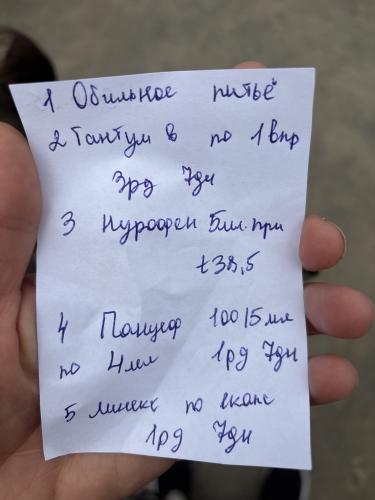 1 Обильное питьё
2 Тантум в по 1 впр
3рд 7дн
3 Нурофен 5мл. при
t38,5
4 Панцеф 100/5мл
по 4мл 1рд 7дн
5 линекс по 1капс
1рд 7дн